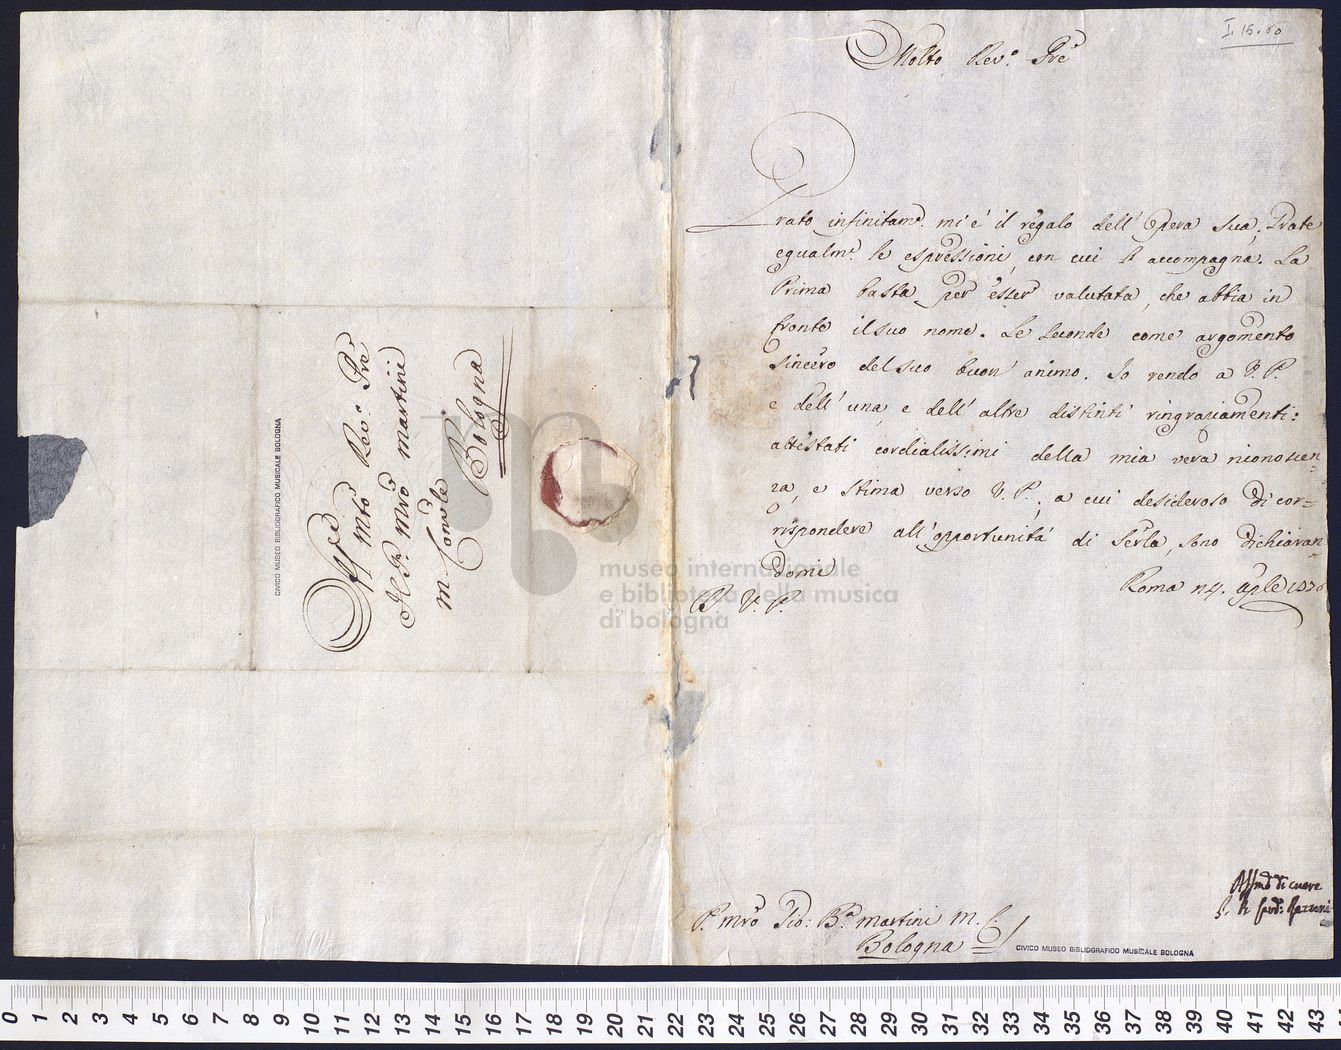 I. 15. 60
Molto Rev.º Pre
Grato infinitam.e mi é il regalo dell'Opera sua. Grate
egualm.e le espressioni, con cui l'accompagna. La
Prima basta per esser valutata, che abbia in
fronte il suo nome. Le seconde come argomento
sincero del suo buon' animo. Io rendo a V. P.
e dell'una, e dell'altre distinti ringraziamenti:
attestati cordialissimi della mia vera riconoscen-
za, e stima verso V. P., a cui desideroso di cor-
rispondere all'opportunitá di Serla, sono dichiaran
domi
Roma
P. V. P.
Aff.mo di cuore
P. Mro Gio: B.a Martini M. C.
Bologna
CIVICO MUSEO BIBLIOGRAFICO MUSICALE BOLOGNA
Al Mto Rev.º Pre
Il P. Mro Martini
M. Con.le
Bologna
CIVICO MUSEO BIBLIOGRAFICO MUSICALE BOLOGNA
museo internazionale
e biblioteca della musica
di bologna
0 1 2 3 4 5 6 7 8 9 10 11 12 13 14 15 16 17 18 19 20 21 22 23 24 25 26 27 28 29 30 31 32 33 34 35 36 37 38 39 40 41 42 43